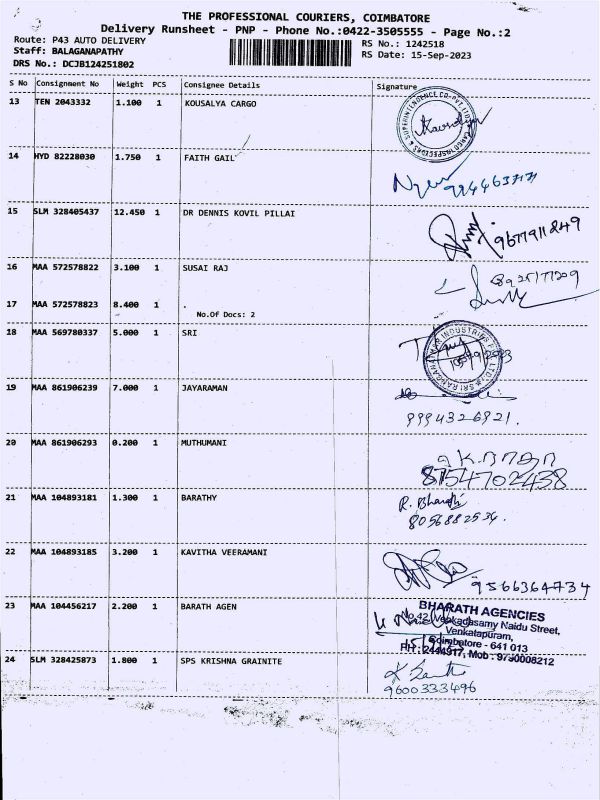 THE PROFESSIONAL COURIERS, COIMBATORE
Delivery Runsheet - PNP - Phone No.:0422-3505555 - Page No.:2
Route: P43 AUTO DELIVERY
RS No.: 1242518
Staff: BALAGANAPATHY
RS Date: 15-Sep-2023
DRS No.: DCJB124251802
S No Consignment No Weight PCS Consignee Details Signature
13 TEN 2043332 1.100 1 KOUSALYA CARGO
14 HYD 82228030 1.750 1 FAITH GAIL
15 SLM 328405437 12.450 1 DR DENNIS KOVIL PILLAI
9677911849
16 MAA 572578822 3.100 1 SUSAI RAJ
8925177209
17 MAA 572578823 8.400 1 .
No.Of Docs: 2
18 MAA 569780337 5.000 1 SRI
19 MAA 861906239 7.000 1 JAYARAMAN
9994326921.
20 MAA 861906293 0.200 1 MUTHUMANI
8754702438
21 MAA 104893181 1.300 1 BARATHY
R. Bharathi
8056882534.
22 MAA 104893185 3.200 1 KAVITHA VEERAMANI
9566364734
23 MAA 104456217 2.200 1 BARATH AGEN
BHARATH AGENCIES
No.42, Venkadasamy Naidu Street,
Venkatapuram,
Coimbatore - 641 013
PH : 2444917, Mob : 9790008212
24 SLM 328425873 1.800 1 SPS KRISHNA GRAINITE
9600333496